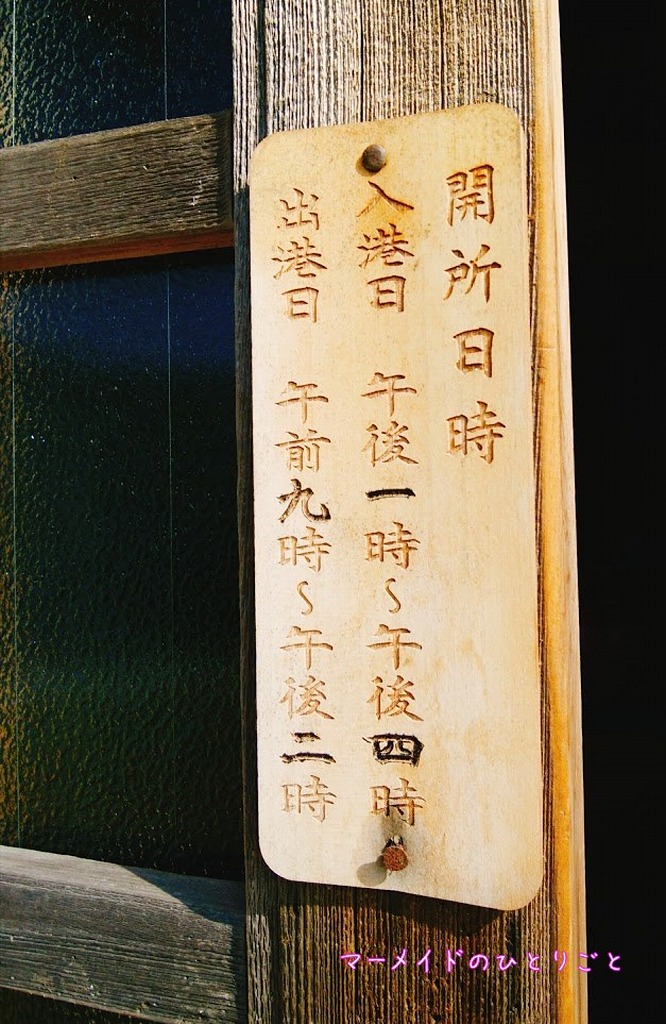 開所日時
入港日 午後一時～午後四時
出港日 午前九時～午後二時
マーメイドのひとりごと